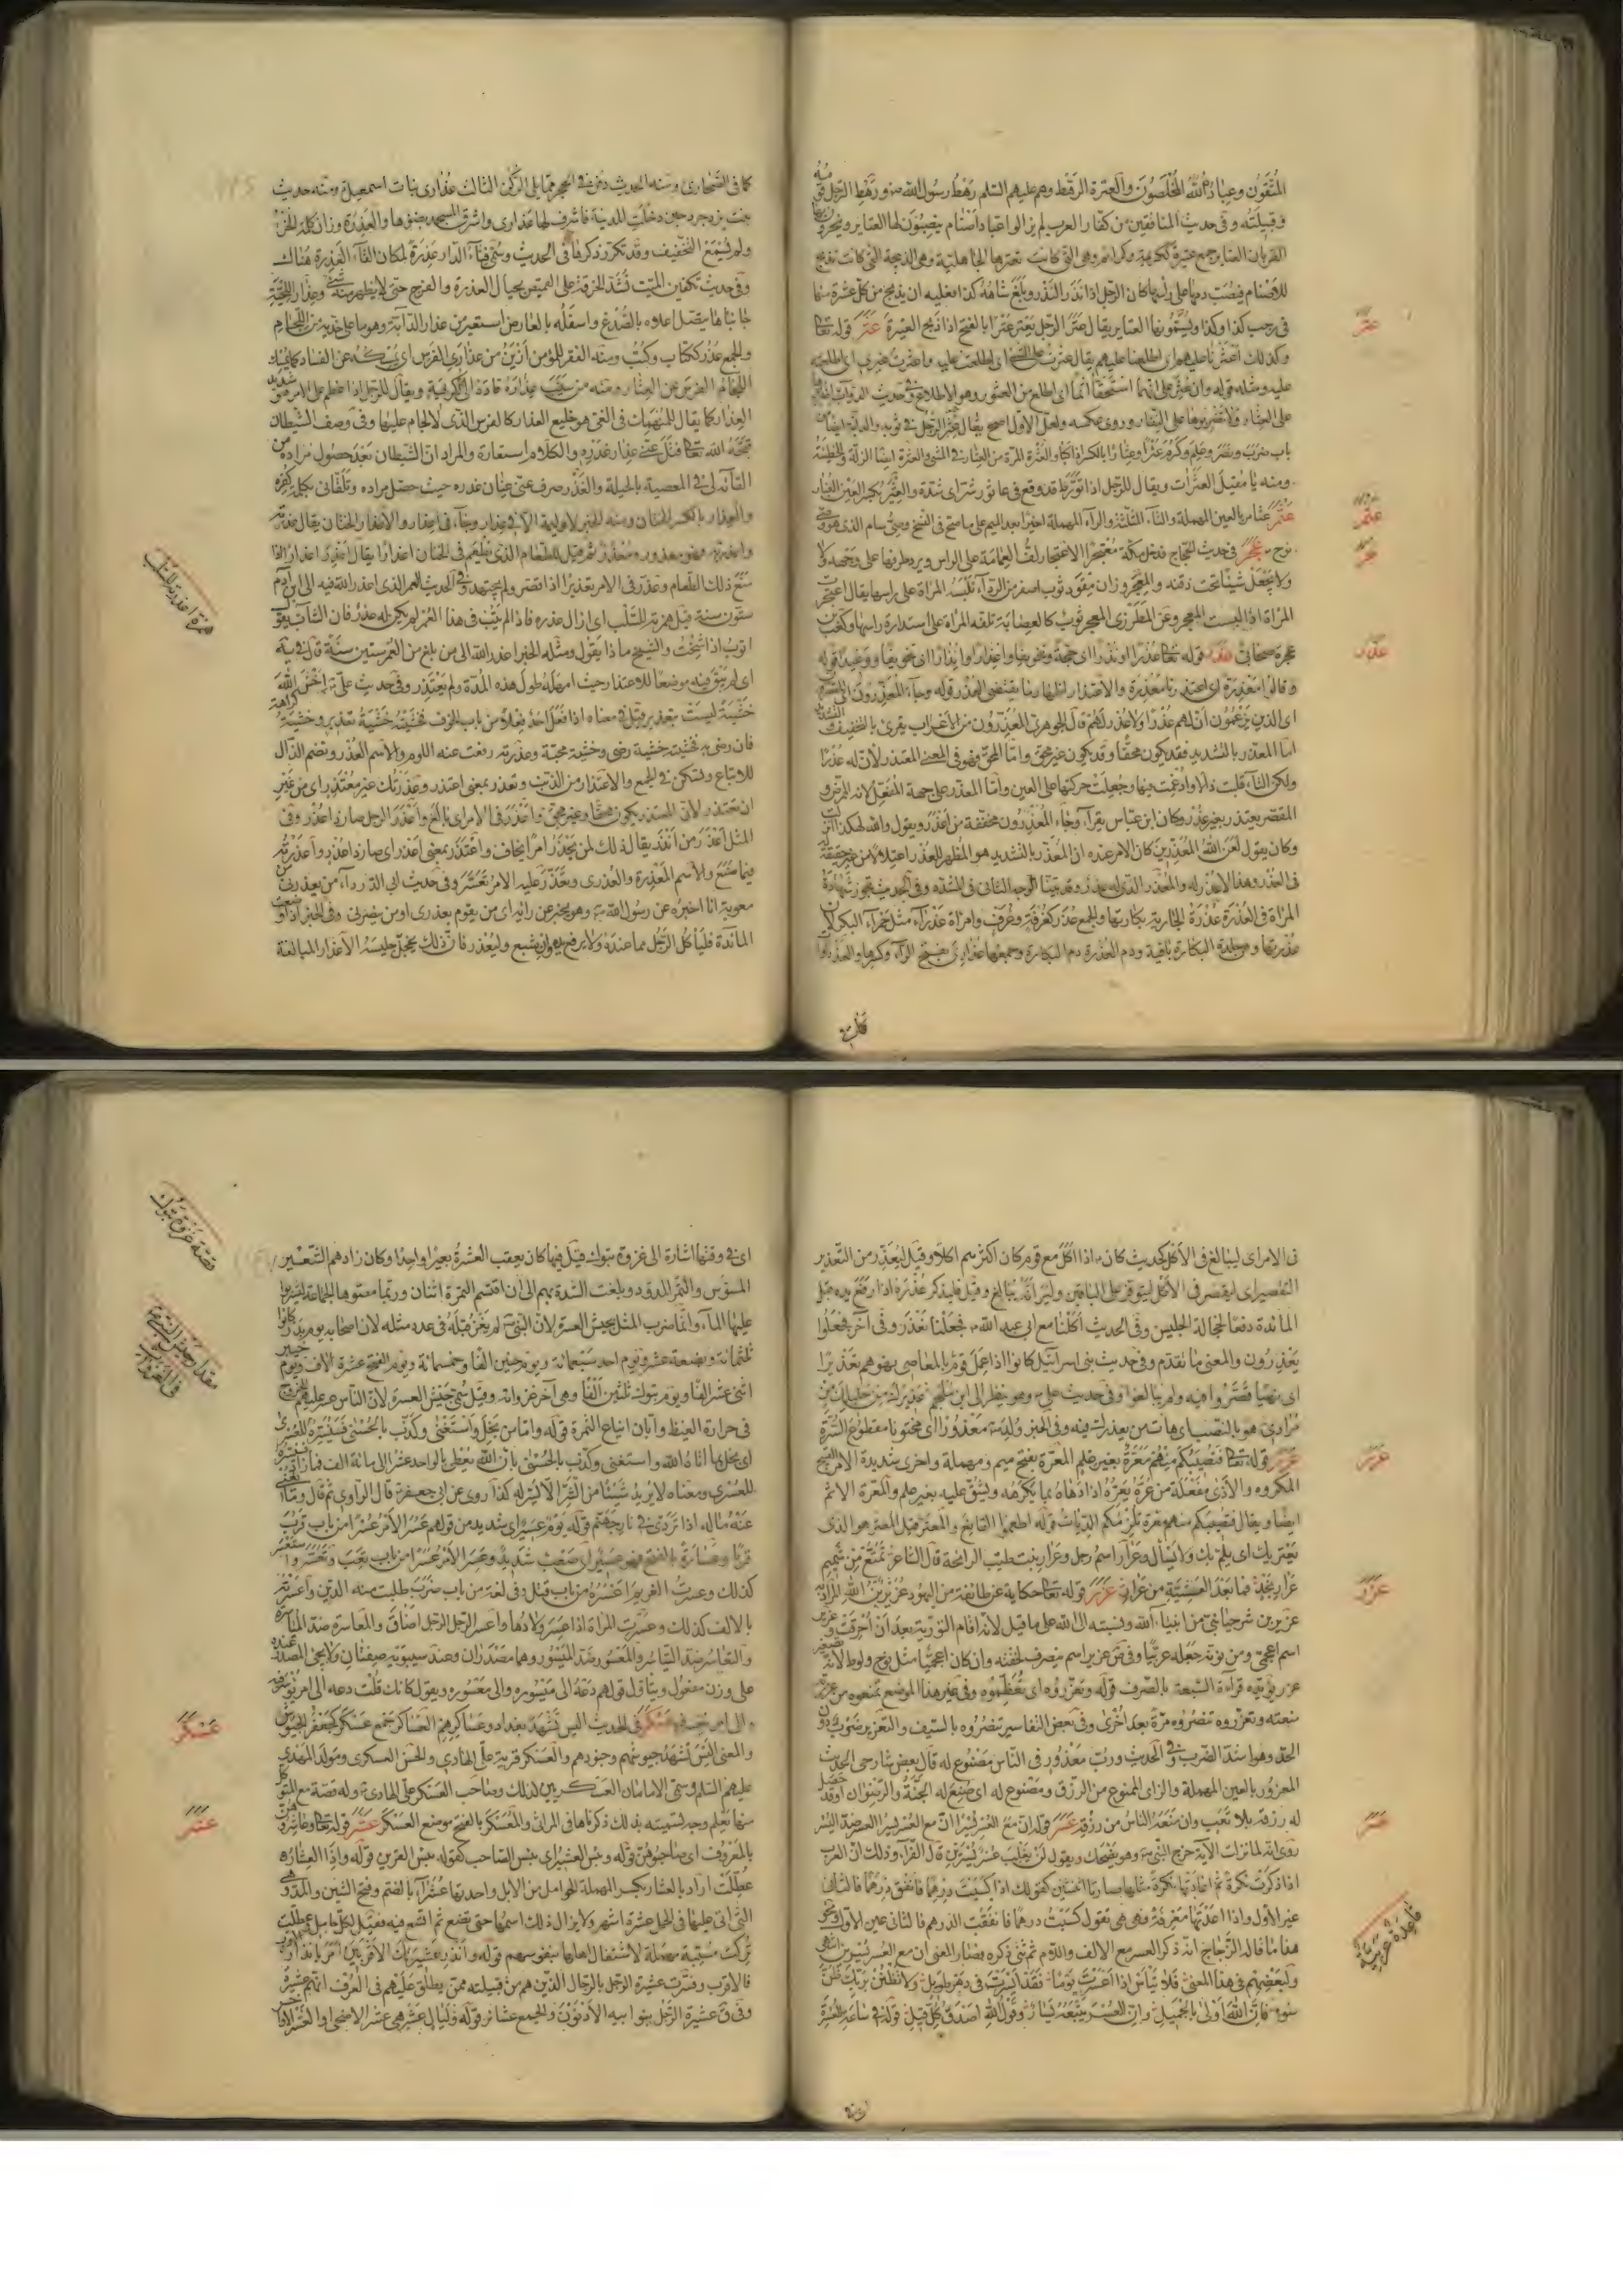 المتقون وعباد الله المخلصون والعترة الرهط وهم عليهم السلم رهط رسول الله ص ورهط الرجل قومه
وقبيلته وفى حديث المنافقين من كفار العرب لم يزالوا عباد اصنام ينصبون لها العتاير وينحرون لها
القربان العتاير جمع عتيرة ككريمة وكرائم وهى التى كانت تعترها الجاهلية وهى الذبيحة التى كانت تذبح
للاصنام فيصب دمها على راسها كان الرجل اذا نذر النذر وبلغ شاهه كذا فعليه ان يذبح من كل عشرة منها
فى رجب كذا وكذا ويسمونها العتاير يقال عتر الرجل يعتر عترا بالفتح اذا ذبح العتيرة عثر قوله تعالى
وكذلك اعثرنا عليهم اى اطلعنا عليهم يقال عثرت على الشئ اى اطلعت عليه واعثرت غيرى اى اطلعته
عليه ومثله قوله وان عثر على انهما استحقا اثما اى اطلع من العثور وهو الاطلاع وفى حديث الدواب اضربوها
على العثار ولا تضربوها على النفار وروى عكسه ولعل الاول اصح يقال عثر الرجل فى ثوبه والدابة ايضا من
باب ضرب ونصر وعلم وكرم عثرا وعثارا بالكسر اذا كبا والعثرة المرة من العثار فى المشى والعثرة ايضا الزلة والخطيئة
ومنه يا مقيل العثرات ويقال للرجل اذا تورط قد وقع فى عاثور شر اى شدة والعثير بكسر العين الغبار
عثمر عثامر بالعين المهملة والثاء المثلثة والراء المهملة اخيرا بعد الميم على ما صح فى النسخ وصى سام الذى هو وصى
نوح عجر فى حديث الحجاج فدخل مكة معتجرا الاعتجار لف العمامة على الراس ويرد طرفها على وجهه ولا
ولا يجعل شيئا تحت ذقنه والمعجر وزان مقود ثوب اصغر من الرداء تلبسه المراة على راسها يقال اعتجرت
المراة اذا لبست المعجر وعن المطرزى المعجر ثوب كالعصابة تلفه المراة على استدارة راسها وكعب بن
عجرة صحابى عذر قوله تعالى عذرا او نذرا اى حجة وتخويفا واعذارا وانذارا اى تخويفا ووعيدا قوله
وقالوا معذرة
اى الذين يزعمون ان لهم عذرا ولا عذر لهم قال الجوهرى المعذرون من الاعراب يقرى بالتخفيف والتشديد
اما المعذر بالتشديد فقد يكون محقا وقد يكون غير محق واما المحق فهو فى المعنى المعتذر لان له عذرا
ولكن التاء قلبت ذالا وادغمت فيها وجعلت حركتها على العين واما المعذر على جهة المفعل لانه الممرض و
المقصر يعتذر بغير عذر وكان ابن عباس يقرا وجاء المعذرون مخففة من اعذر ويقول والله لهكذا انزلت
وكان يقول لعن الله المعذرين كان الامر عنده ان المعذر بالتشديد هو المظهر للعذر اعتلالا من غير حقيقة له
فى العذر وهذا لا عذر له والمعذر الذى له عذر وقد بينا الوجه الثانى فى المشدد وفى الحديث تجوز شهادة
المراة فى العذرة عذرة الجارية بكارتها والجمع عذر كغرفة وغرف وامراة عذراء مثل حمراء البكر لان
عذرتها وهى جلدة البكارة باقية ودم العذرة دم البكارة وجمعها عذارى بفتح الراء وكسرها والعذراوات
عثر
عثمر
عجر
عذر
كما فى الصحارى ومنه الحديث دفن فى الحجر مما يلى الركن الثالث عذارى بنات اسمعيل ومنه حديث
بنت يزدجرد حين دخلت المدينة فاشرف لها عذارى واشرق المسجد بضوئها والعذرة وزان كلمة الخرء
ولم يسمع التخفيف وقد تكرر ذكرها فى الحديث وسمى فناء الدار عذرة لمكان القاء العذرة هناك
وفى حديث تكفين الميت تشد الخرقة على القميص بحيال العذرة والفرج حتى لا يظهر منه شئ وعذار اللحية
جانباها يتصل اعلاه بالصدغ واسفله بالعارض استعير من عذار الدابة وهو ما على خديه من اللجام
والجمع عذر ككتاب وكتب ومنه الفقر للمؤمن ازين من عذار الفرس اى يمسكه عن الفساد كما يمسك
اللجام الفرس عن العثار
العذار كما يقال للمنهمك فى الغى هو خليع العذار كالفرس الذى لا لجام عليها وفى وصف الشيطان
قبحه الله تعالى فتل عنى عذار غدره والكلام استعارة والمراد ان الشيطان بعد حصول مراده من
القائه لى فى المعصية بالحيلة والغدر صرف عنى عنان غدره حيث حصل مراده وتلقانى بكلمة كفره
والعذار بالكسر الختان ومنه الخبر لا وليمة الا فى عذار وجاء فى اعذار والاعذار الختان يقال عذرته
واعذرته فهو معذور ومعذر ثم قيل للطعام الذى يطعم فى الختان اعذارا يقال اعذر اعذارا اذا
صنع ذلك الطعام وعذر فى الامر تعذيرا اذا قصر ولم يجتهد وفى الحديث العمر الذى اعذر الله فيه الى ابن آدم
ستون سنة قيل همزته للسلب اى ازال عذره فاذا لم يتب فى هذا العمر لم يكن له عذر فان الشاب يقول
اتوب اذا شخت والشيخ ماذا يقول ومثله الخبر اعذر الله الى من بلغ من العمر ستين سنة
اى لم يبق فيه موضعا للاعتذار حيث امهله طول هذه المدة ولم يعتذر وفى حديث على ع اخش الله
خشية ليست بتعذير
للاتباع وتسكن فى الجمع والاعتذار من الذنب وتعذر بمعنى اعتذر وعذرتك غير معتذر اى من غير
ان تعتذر لان المعتذر يكون محقا وغير محق واعذر فى الامر اى بالغ واعذر الرجل صار ذا عذر وفى
المثل اعذر من انذر يقال ذلك لمن يحذر امرا يخاف واعتذر بمعنى اعذر اى صار ذا عذر واعذرته
فيما صنع والاسم المعذرة والعذرى وتعذر عليه الامر تعسر وفى حديث ابى الدرداء من يعذرنى من
معوية انا اخبره عن رسول الله ص وهو يخبر عن رايه اى من يقوم بعذرى او من ينصرنى وفى الخبر اذا وضعت
المائدة فلياكل الرجل مما عنده ولا يرفع يده وان شبع وليعذر فان ذلك يخجل جليسه الاعذار المبالغة
همزة اعذر للسلب
فى الامر اى ليبالغ فى الاكل كحديث كان ص اذا اكل مع قوم كان اكثرهم اكلا وقيل ليعذر من التعذير
التقصير اى ليقصر فى الاكل ليتوفر على الباقين وليرانه يبالغ وقيل فليذكر عذره اذا رفع يده قبل
المائدة دفعا لخجالة الجليس وفى الحديث اكلنا مع ابى عبد الله ع فجعلنا نعذر وفى آخر فجعلوا
يعذرون والمعنى ما تقدم وفى حديث بنى اسرائيل كانوا اذا عمل قوم بالمعاصى نهوهم تعذيرا
اى نهيا قصروا فيه ولم يبالغوا وفى حديث على ع وهو ينظر الى ابن ملجم عذيرك من خليلك من
مراد
عرر قوله تعالى فتصيبكم منهم معرة بغير علم المعرة بفتح ميم ومهملة واخرى شديدة الامر القبيح
المكروه والاذى مفعلة من عره يعره اذا دهاه بما يكرهه ويشق عليه بغير علم والمعرة الاثم
ايضا ويقال فتصيبكم منهم معرة تلزمكم الديات قوله اطعموا القانع والمعتر قيل المعتر هو الذى
يعتريك اى يلم بك ولا يسال وعرار اسم رجل وعرار نبت طيب الرائحة قال الشاعر تمتع من شميم
عرار نجد فما بعد العشية من عرار عزر قوله تعالى حكاية عن طائفة من اليهود عزير بن الله المراد به
عزير بن شرحيا نبى من انبياء الله ونسبته الى الله على ما قيل لانه اقام التورية بعد ان احرقت وعزير
اسم اعجمى ومن نونه جعله عربيا وفى ص عزير اسم ينصرف لخفته وان كان اعجميا مثل نوح ولوط لانه تصغير
منعته وتعزروه تنصروه مرة بعد اخرى وفى بعض التفاسير تنصروه بالسيف والتعزير ضرب دون
الحد وهو اشد الضرب وفى الحديث ورب معذور فى الناس مصنوع له قال بعض شارحى الحديث
المعزور بالعين المهملة والزاى الممنوع من الرزق ومصنوع له اى صنع له الجنة والرضوان او قد حصل
له رزقه بلا تعب وان منعه الناس من رزقه عسر قوله ان مع العسر يسرا ان مع العسر يسرا العسر ضد اليسر
روى انه لما نزلت الآية خرج النبى ص وهو يضحك ويقول لن يغلب عسر يسرين قال الفراء وذلك ان العرب
اذا ذكرت نكرة ثم اعادتها نكرة مثلها صارتا اثنتين كقولك اذا كسبت درهما فانفق درهما فالثانى
غير الاول واذا اعدتها معرفة فهى هى تقول كسبت درهما فانفقت الدرهم فالثانى عين الاول ونحو
هذا ما قاله الزجاج انه ذكر العسر مع الالف واللام ثم ثنى ذكره فصار المعنى ان مع العسر يسرين انتهى
ولبعضهم فى هذا المعنى فلا تياس اذا اعسرت يوما فقد ايسرت فى دهر طويل ولا تظنن بربك ظن
سوء فان الله اولى بالجميل وان العسر يتبعه يسار وقول الله اصدق كل قيل قوله فى ساعة العسرة
عرر
عزر
عسر
قاعدة عربية
اى فى وقتها اشارة الى غزوة تبوك قيل فيها كان يعقب العشرة بعيرا واحدا وكان زادهم الشعير
المسوس والتمر المدود وبلغت الشدة بهم الى ان اقتسم التمرة اثنان وربما مصوها الجماعة ليشربوا
عليها الماء وانما ضرب المثل بجيش العسرة لان النبى ص لم يغز قبله فى عدد مثله لان اصحابه يوم بدر كانوا
ثلثمائة وبضعة عشر ويوم احد سبعمائة ويوم حنين الفا وخمسمائة ويوم الفتح عشرة الاف ويوم
اثنى عشر الفا ويوم تبوك ثلثين الفا وهى آخر غزواته وقيل سمى جيش العسرة لان الناس عسر عليهم الخروج
فى حرارة القيظ وابان ايناع الثمرة قوله واما من بخل واستغنى وكذب بالحسنى فسنيسره للعسرى
اى بخل بما آتاه الله واستغنى وكذب بالحسنى بان الله يعطى بالواحد عشرا الى مائة الف فما زاد فسنيسره
للعسرى ومعناه لا يريد شيئا من الشر الا يسر له كذا روى عن ابى جعفر ع قال الراوى ثم قال وما يغنى
عنه ماله اذا تردى فى نار جهنم قوله يوم عسير اى شديد من قولهم عسر الامر عسرا من باب قرب
كذلك وعسرت الغريم اعسره من باب قتل وفى لغة من باب ضرب طلبت منه الدين واعسرته
بالالف كذلك وعسرت المراة اذا عسر ولادها واعسر الرجل اضاق والمعاسرة ضد المياسرة
والتعاسر ضد التياسر والمعسور ضد الميسور وهما مصدران وعند سيبويه صفتان ولا يجئ المصدر عنده
على وزن مفعول ويتاول قولهم دعه الى ميسوره والى معسوره ويقول كانك قلت دعه الى امر يوسر فيه
والى امر يعسر فيه عسكر فى الحديث اليس تشهد بغداد وعساكرهم العساكر جمع عسكر كجعفر الجيوش
والمعنى اليس تشهد جيوشهم وجنودهم والعسكر قرية على الهادى والحسن العسكرى ومولد المهدى
عليهم السلم وسمى الامامان العسكريين لذلك وصاحب العسكر على الهادى ع وله قصة مع المتوكل
منها تعلم وجه تسميته بذلك ذكرناها فى المراثى والمعسكر بالفتح موضع العسكر عشر قوله تعالى وعاشروهن
بالمعروف اى صاحبوهن قوله وبئس العشير اى بئس الصاحب كقوله بئس القرين قوله واذا العشار
عطلت اراد بالعشار بكسر المهملة الحوامل من الابل واحدتها عشراء بالضم وفتح الشين والمد وهى
التى اتى عليها فى الحمل عشرة اشهر ولا يزال ذلك اسمها حتى تضع ثم اتسع فيه فقيل لكل حامل عطلت
تركت مسيبة مهملة لاشتغال اهلها بنفوسهم قوله وانذر عشيرتك الاقربين امر بانذار الاقرب
فالاقرب وفسرت عشيرة الرجل بالرجال الذين هم من قبيلته ممن يطلق عليهم فى العرف انهم عشيرة
وفى ق عشيرة الرجل بنو ابيه الادنون والجمع عشائر قوله وليال عشر هى عشر الاضحى او العشر الاواخر
قصة غزوة تبوك
عسكر
عشر